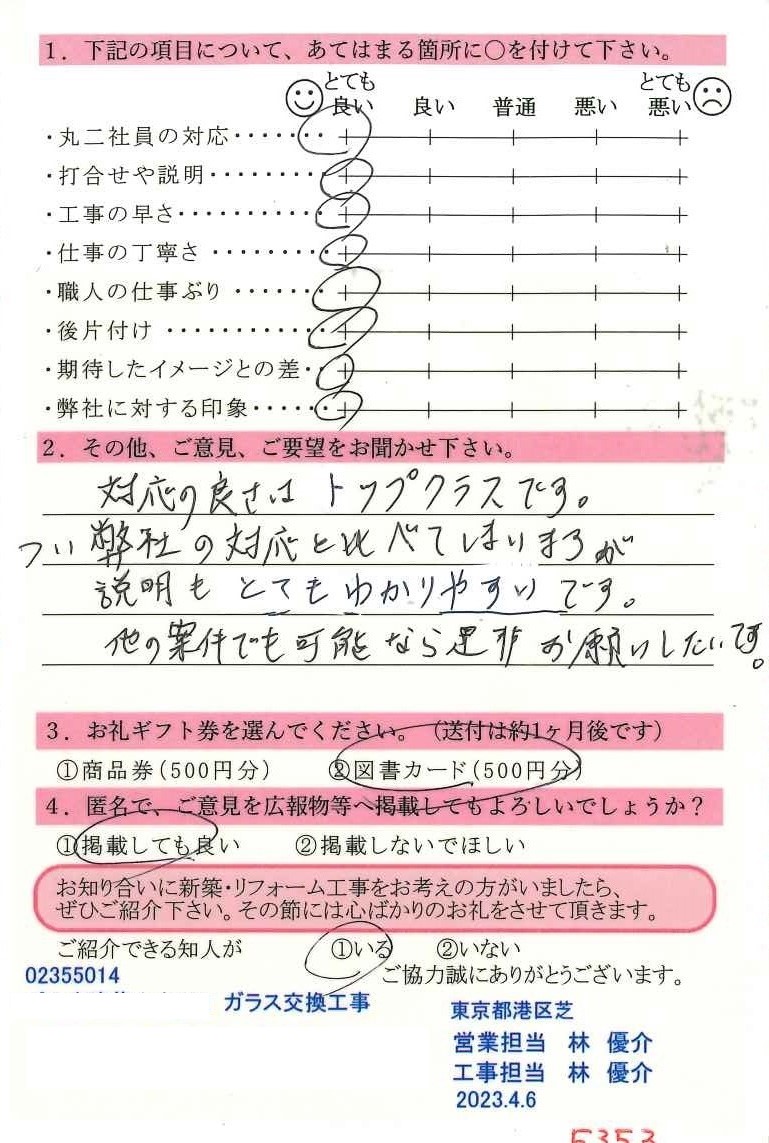 1．下記の項目について、あてはまる箇所に○を付けて下さい。
とても良い 良い 普通 悪い とても悪い
・丸二社員の対応・・・・・・・・
・打合せや説明・・・・・・・・・
・工事の早さ・・・・・・・・・・・
・仕事の丁寧さ・・・・・・・・・
・職人の仕事ぶり・・・・・・・
・後片付け・・・・・・・・・・・・
・期待したイメージとの差・
・弊社に対する印象・・・・・・
2．その他、ご意見、ご要望をお聞かせ下さい。
対応の良さは トップクラスです。
つい 弊社の対応と比べてしまいますが
説明も とてもわかりやすいです。
他の案件でも可能なら是非お願いしたいです。
3．お礼ギフト券を選んでください。（送付は約1ヶ月後です）
①商品券（500円分） ②図書カード（500円分）
4．匿名で、ご意見を広報物等へ掲載してもよろしいでしょうか？
①掲載しても良い ②掲載しないでほしい
お知り合いに新築・リフォーム工事をお考えの方がいましたら、
ぜひご紹介下さい。その節には心ばかりのお礼をさせて頂きます。
ご紹介できる知人が ①いる ②いない
02355014 ご協力誠にありがとうございます。
ガラス交換工事 東京都港区芝
営業担当 林 優介
工事担当 林 優介
2023.4.6